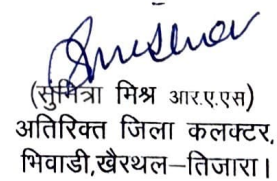 (सुमित्रा मिश्र आर.ए.एस)
अतिरिक्त जिला कलक्टर,
भिवाडी,खैरथल–तिजारा।